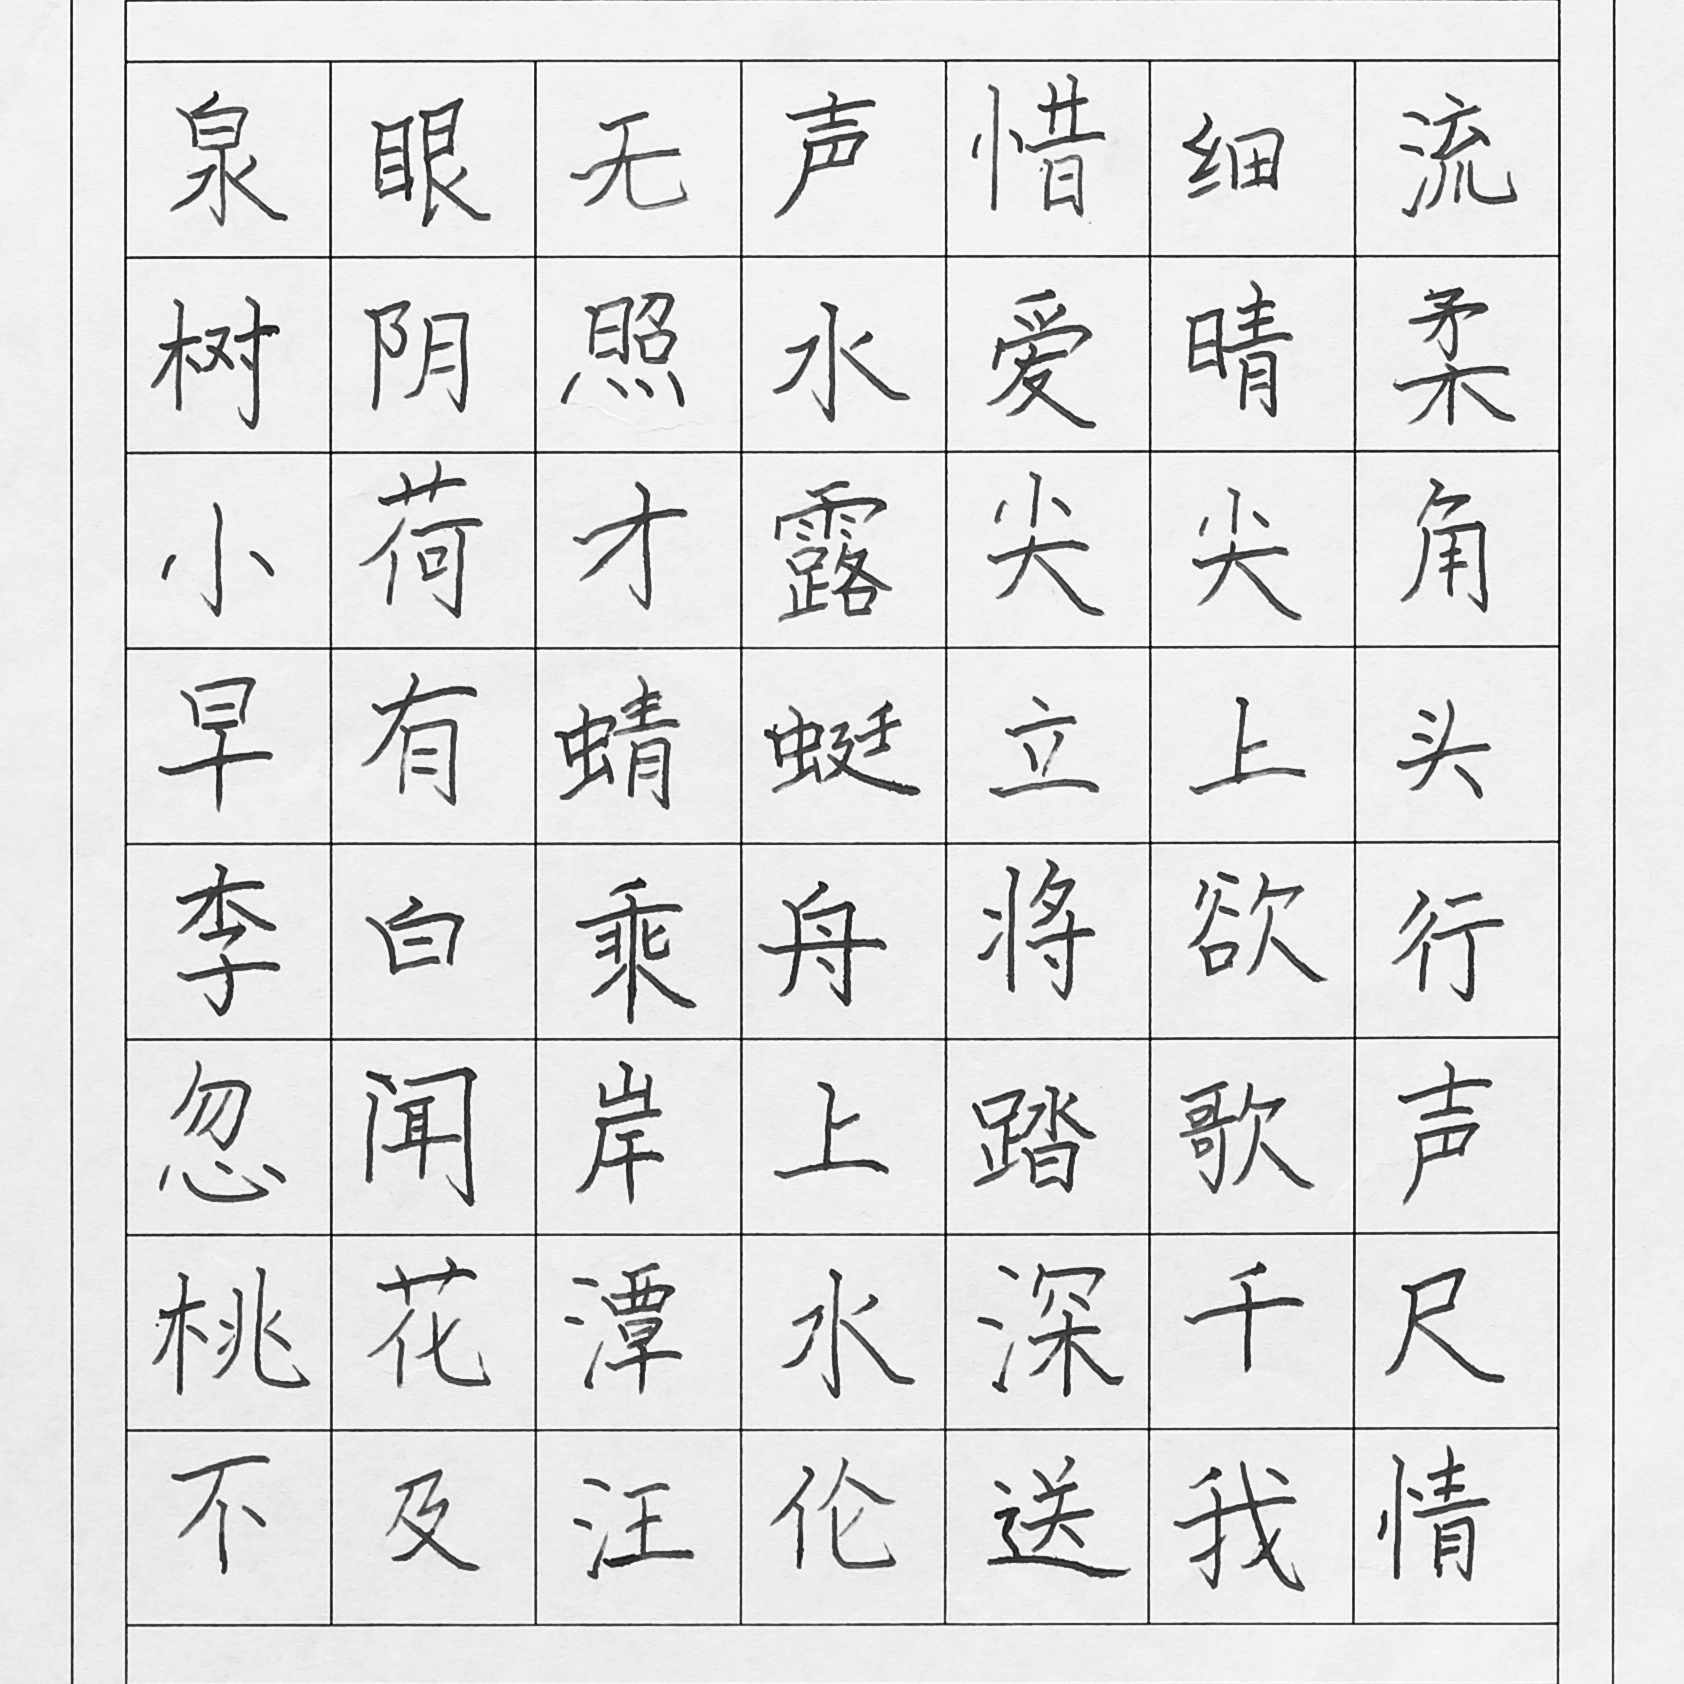 泉眼无声惜细流
树阴照水爱晴柔
小荷才露尖尖角
早有蜻蜓立上头
李白乘舟将欲行
忽闻岸上踏歌声
桃花潭水深千尺
不及汪伦送我情